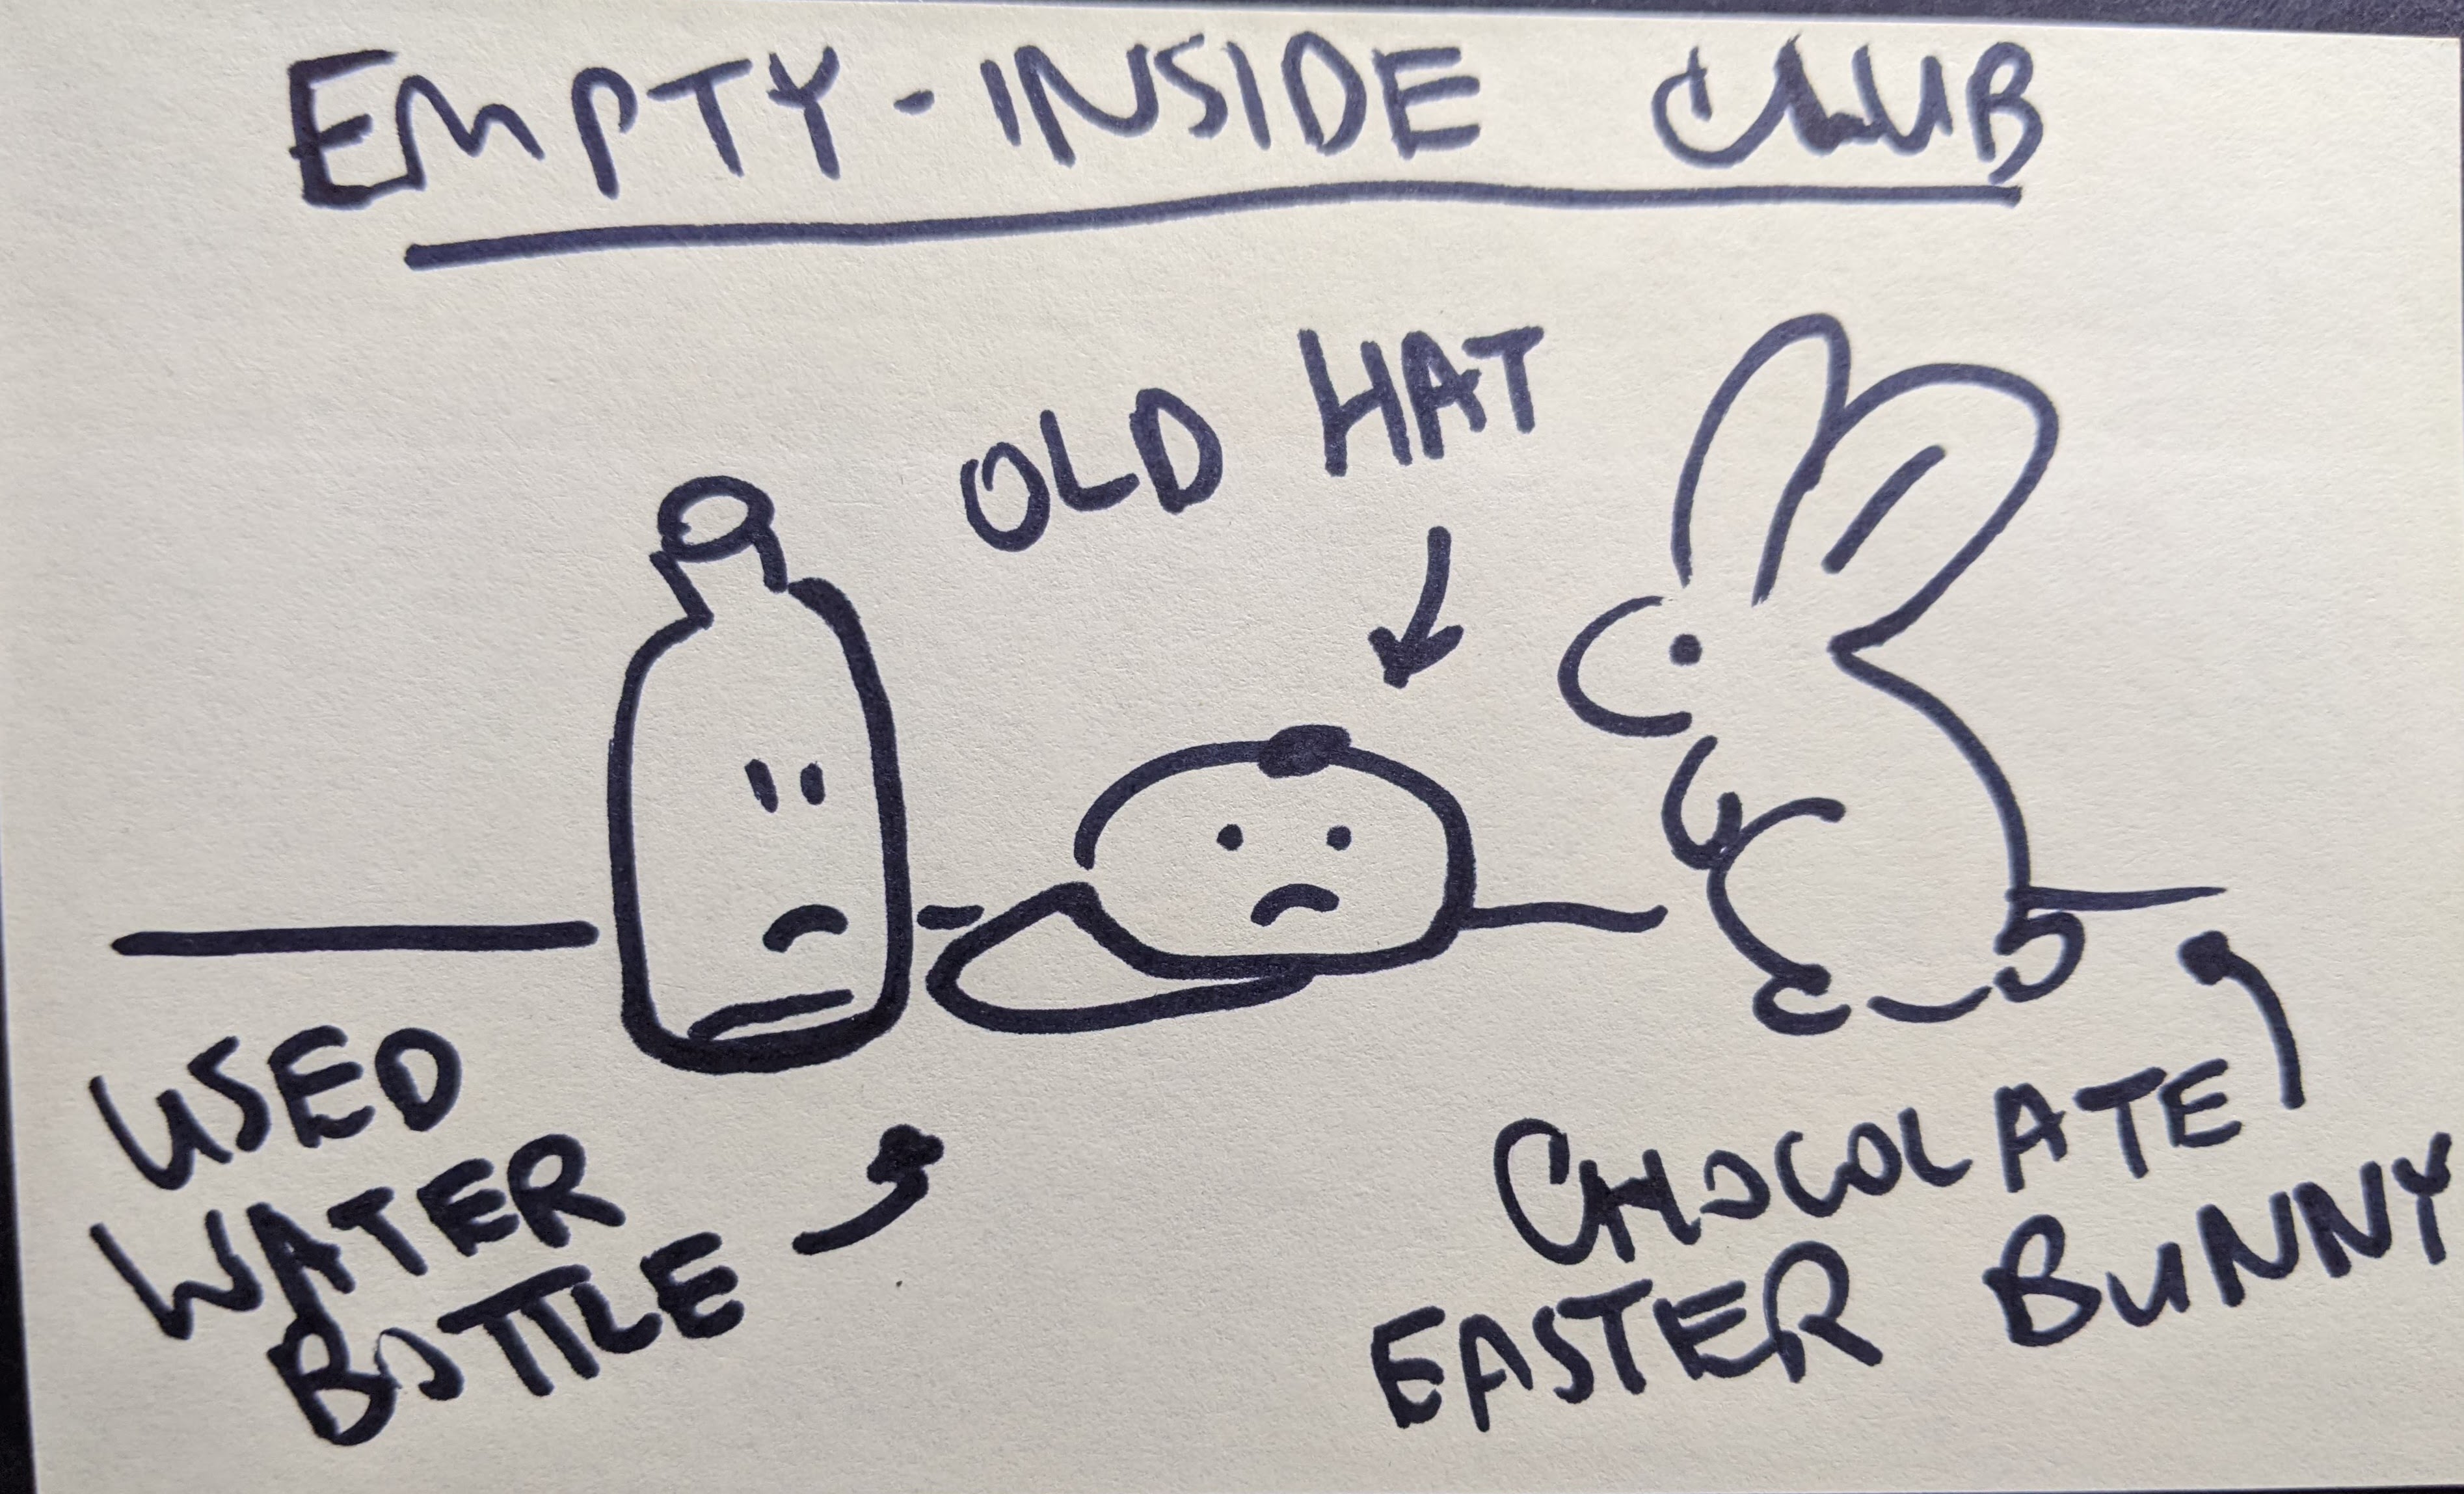 EMPTY-INSIDE CLUB
OLD HAT
USED
WATER
BOTTLE
CHOCOLATE
EASTER BUNNY